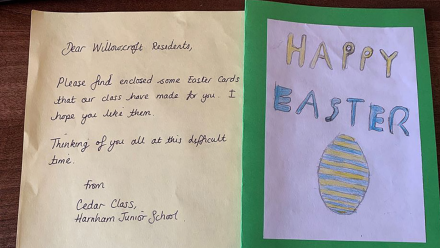 Dear Willowcroft Residents,
Please find enclosed some Easter Cards
that our class have made for you. I
hope you like them.
Thinking of you all at this difficult
time.
From
Cedar Class,
Harnham Junior School.
HAPPY
EASTER